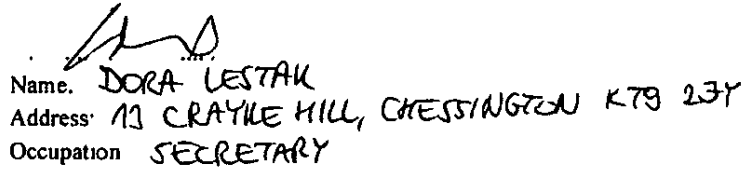 Name. DORA LESTAK
Address· 13 CRAYKE HILL, CHESSINGTON KT9 2JY
Occupation SECRETARY